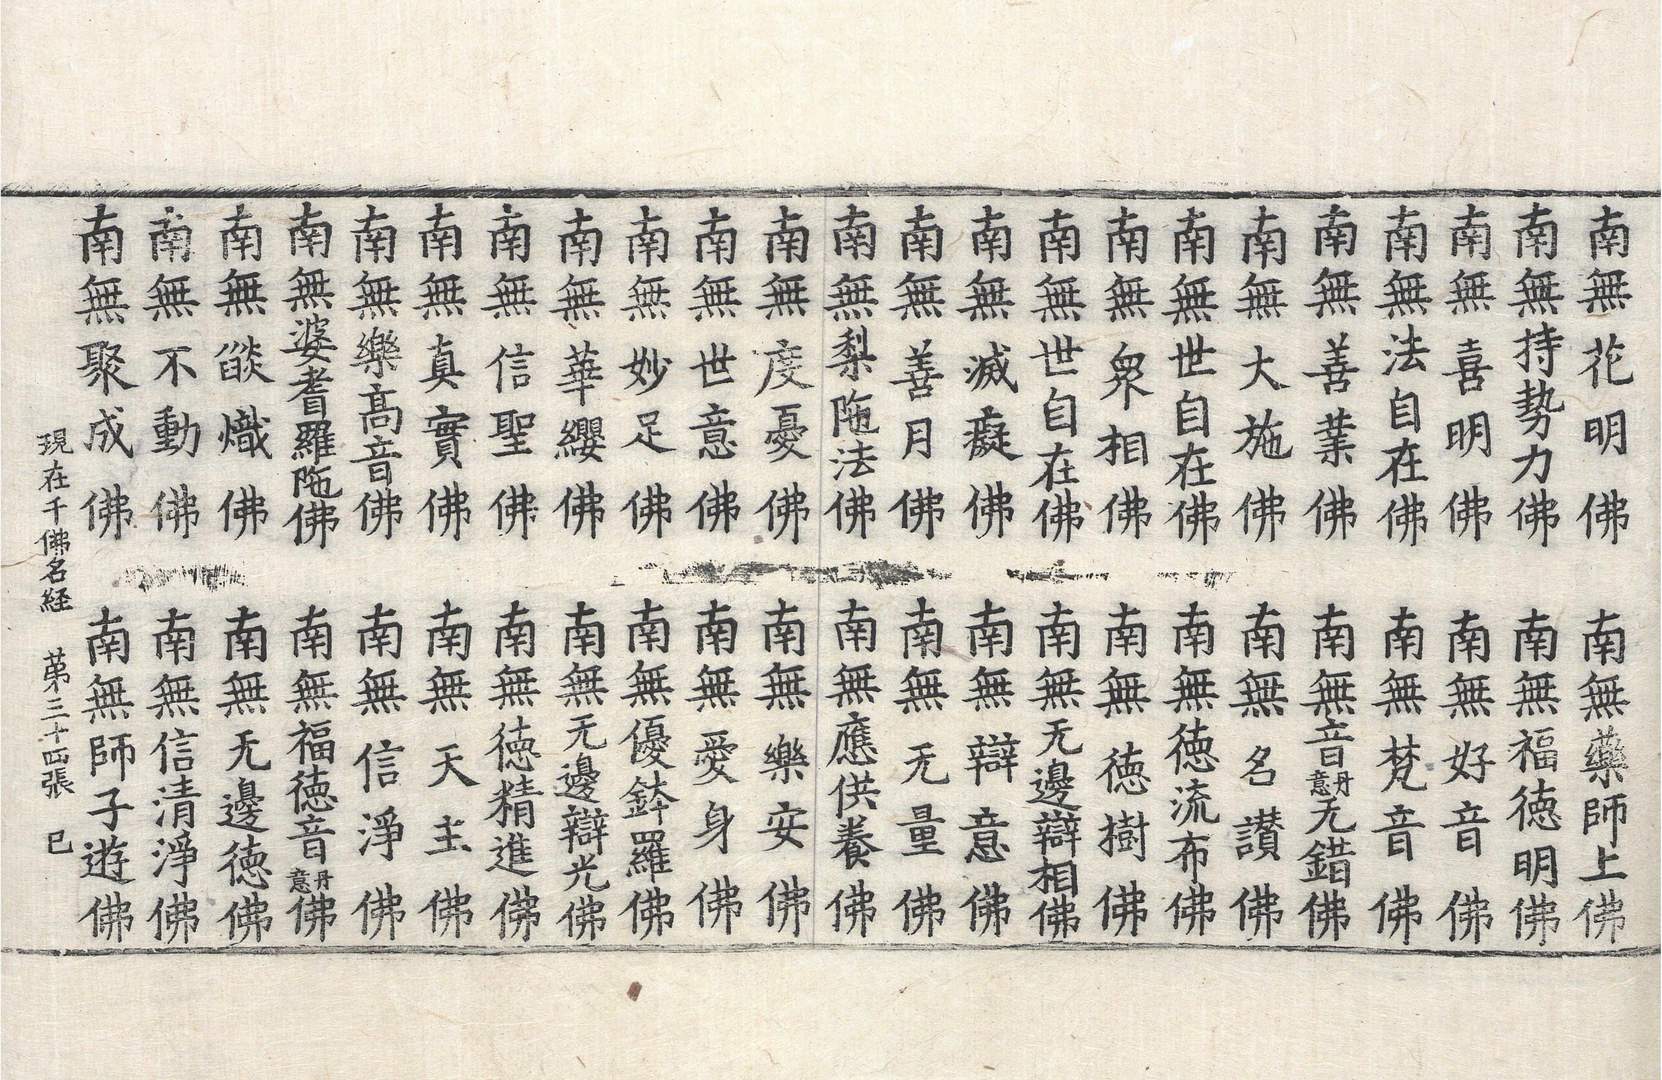 南無花明佛 南無藥師上佛
南無持勢力佛 南無福徳明佛
南無喜明佛 南無好音佛
南無法自在佛 南無梵音佛
南無善業佛 南無音丹意无錯佛
南無大施佛 南無名讃佛
南無世自在佛 南無徳流布佛
南無衆相佛 南無徳樹佛
南無世自在佛 南無无邊辯相佛
南無滅癡佛 南無辯意佛
南無善月佛 南無无量佛
南無梨陁法佛 南無應供養佛
南無度憂佛 南無樂安佛
南無世意佛 南無愛身佛
南無妙足佛 南無優鉢羅佛
南無華纓佛 南無无邊辯光佛
南無信聖佛 南無徳精進佛
南無真實佛 南無天主佛
南無樂高音佛 南無信淨佛
南無婆耆羅陁佛 南無福徳音丹意佛
南無燄熾佛 南無无邊徳佛
南無不動佛 南無信清淨佛
南無聚成佛 南無師子遊佛
現在千佛名経 苐三十四張 已